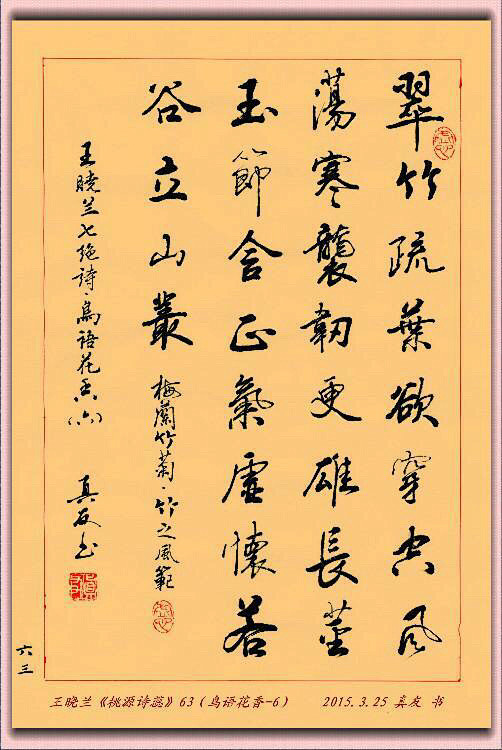 翠竹疏葉欲穿空風
蕩寒襲韌更雄長莖
玉節含正氣虛懷若
谷立山叢
梅蘭竹菊·竹之風範
王曉兰七绝詩·鳥語花香(六)
真友书
六三
王晓兰《桃源诗蕊》63（鸟语花香-6） 2015.3.25 真友 书